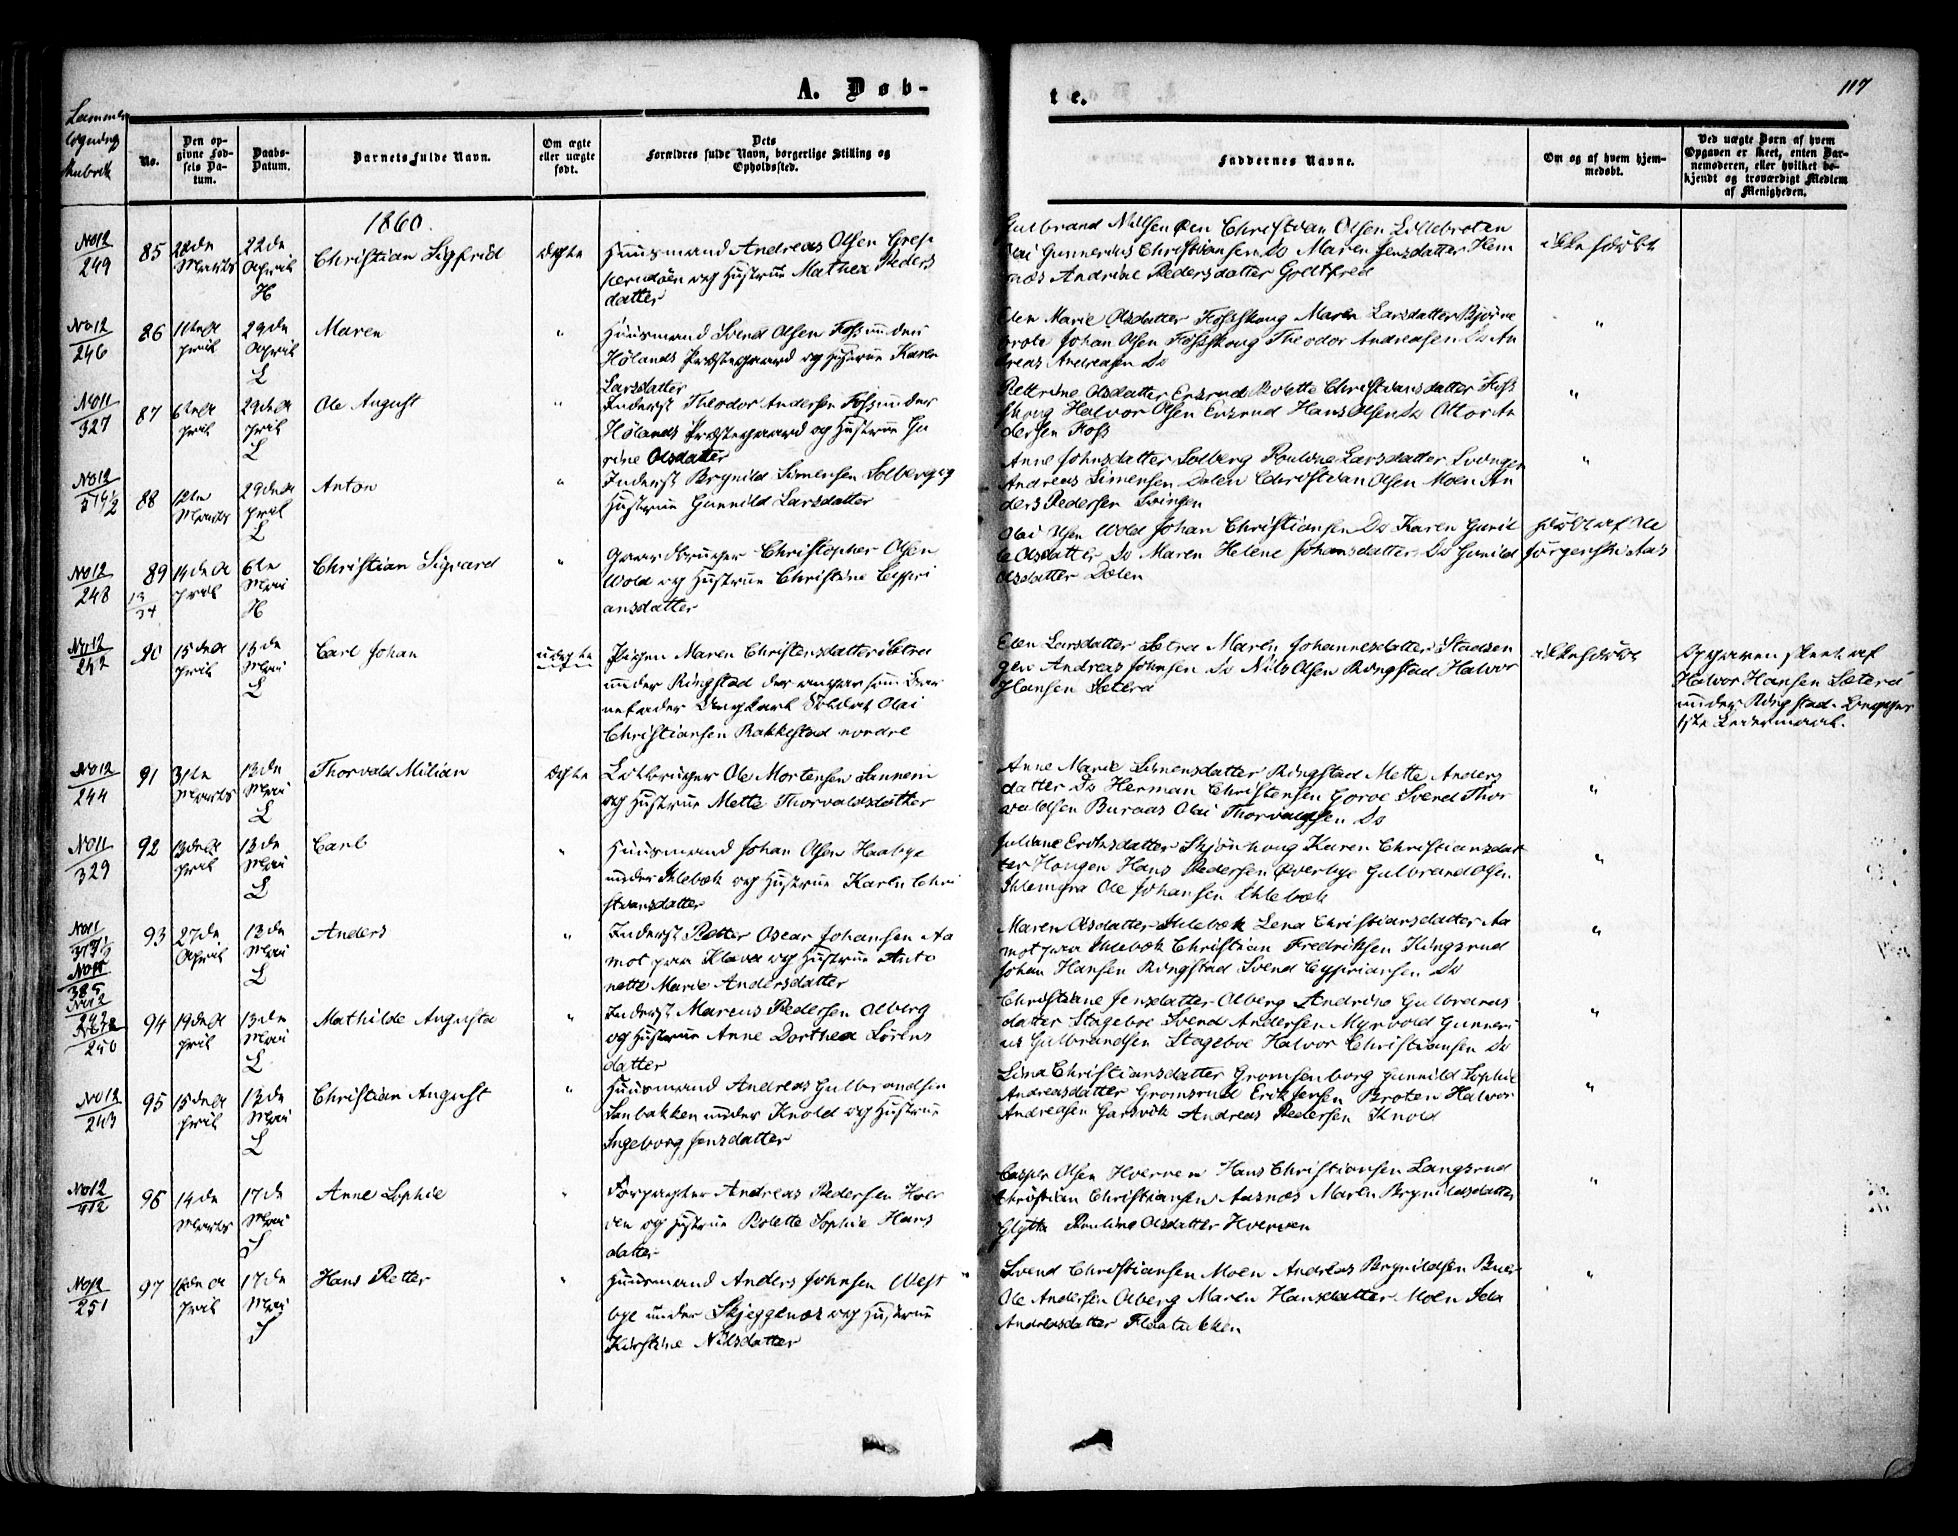 A. Døb-
te.
117
No.
Den op-
givne Fød-
sels Da-
tum.
Daabs-
Datum.
Barnets fulde Navn.
Om ægte
eller uægte
født.
Dets
Forældres fulde Navn, borgerlige Stilling og
Opholdssted.
Faddernes Navne.
Om og af hvem hjem-
medøbt.
Ved uægte Børn af hvem
Opgaven er skeet, enten Bar-
nemoderen, eller hvilket be-
kjendt og troværdigt Medlem
af Menigheden.
1860.
No 12
249
85
22de
Marts
22de
April
H
Christian Sigfrid
Ægte
Huusmand Andreas Olsen
og Hustrue Mathea Peders
datter
Gulbrand Nilsen Christian Olsen Lillebroten
Gunnerius Christiansen Do Maren Jensdatter Hem
næs Andrine Pedersdatter Godtfred
No 12
246
86
11te A
pril
29de
April
L
Maren
"
Huusmand Svend Olsen Foss under
Hølands Præstegaard og Hustrue Karen
Larsdatter
Elen Marie Olsdatter Fossskoug Maren Larsdatter Bjørne
brote Johan Olsen Fossskoug Theodor Andreasen Do An
dreas Andreasen Do
"
No 11
327
87
6te A
pril
29de A
pril
L
Ole August
"
Inderst Theodor Andersen Foss under
Hølands Præstegaard og Hustrue
rine Olsdatter
Olsdatter Bolette Christiansdatter Foss
skoug Halvor Olsen Hans Olsen Do An
dersen Foss
"
No 12
88
12te
Marts
29de A
pril
L
Anton
"
Inderst Brynild Simensen Solberg og
Hustrue Gunnild Larsdatter
Anne Johnsdatter Solberg Pouline Larsdatter Svingen
Andreas Simensen Dalen Christian Olsen Moen An
ders Pedersen Svingen
"
No 12
248
89
14de A
pril
6te
Mai
H
Christian Sigvard
"
Gaardbruger Christopher Olsen
Wold og Hustrue Christine Cypri
ansdatter
Olai Olsen Wold Johan Christiansen Do Karen Gunil
de Olsdatter Do Maren Helene Johansdatter Do Gunild
Olsdatter Dalen
af Ole
Jørgensen Aas
No 12
90
15de A
pril
13de
Mai
L
Carl Johan
uægte
Pigen Maren Christensdatter Sætra
under Ringstad der angav som Bar
nefader Ungkarl Soldat Olai
Christiansen Rakkestad nordre
Elen Larsdatter Sætra Maren Johannesdatter Stadsen
gen Andreas Johnsen Do Nils Olsen Ringstad Halvor
Hansen Sætera
Opgaven skeet af
Halvor Hansen Sætera
under Ringstad.
Leiermaal.
No 12
244
91
31te
Marts
13de
Mai
L
Thorvald Milian
Ægte
Ole Mortensen Sannem
og Hustrue Mette Thorvaldsdatter
Anne Marie Simensdatter Ringstad Mette Anders
datter Do Herman Christensen Gorve Svend Thor
valdsen Buraas Olai Thorvaldsen Do
"
No 11
329
92
13de A
pril
13de
Mai
L
Carl
"
Huusmand Johan Olsen Haabye
under Ihlebæk og Hustrue Karen Chri
stiansdatter
Juliane Eriksdatter Skjønhoug Karen Christiansdat
ter Hougen Hans Pedersen Øverbye Gulbrand Olsen
Ole Johansen Ihlebæk
"
No 11
93
27de
April
13de
Mai
L
Anders
"
Inderst Petter Oscar Johansen Aa
mot paa og Hustrue Anto
nette Marie Andersdatter
Maren Olsdatter Ihlebæk Lena Christiansdatter Aa
mot paa Ihlebæk Christian Fredriksen Kingsrud
Johan Hansen Ringstad Svend Cypriansen Do
"
250
94
19de A
pril
13de
Mai
L
Mathilde Augusta
"
Inderst Marcus Pedersen Olberg
og Hustrue Anne Dorthea Sørens
datter
Christiane Jensdatter Olberg Andrine Gulbrands
datter Stageboe Svend Andersen Myrvold Gunneri
us Gulbrandsen Stageboe Halvor Christiansen Do
"
No 12
243
95
15de A
pril
13de
Mai
L
Christian August
"
Huusmand Andreas Gulbrandsen
Sanbakken under Knold og Hustrue
Ingeborg Jensdatter
Lina Christiansdatter Gromsenborg Gunnild Sophie
Andreasdatter Gromsrud Erik Jensen Broten Halvor
Andreasen Garsvik Andreas Pedersen Knold
"
No 12
96
14de
Marts
17de
Mai
J
Anne Sophie
"
Forpagter Andreas Pedersen Hver
ven og Hustrue Bolette Sophie Hans
datter
Casper Olsen Hverven Hans Christiansen Langsrud
Christian Christiansen Aasnæs Maren Brynildsdatter
Pouline Olsdatter Hverven
"
No 12
251
97
12de A
pril
17de
Mai
J
Hans Petter
"
Huusmand Anders Johnsen West
bye under Skjeggenæs og Hustrue
Kirstine Nilsdatter
Svend Christiansen Moen Andreas Brynildsen
Ole Andersen Olberg Maren Hansdatter Moen Ida
Andreasdatter Flaatukken
"